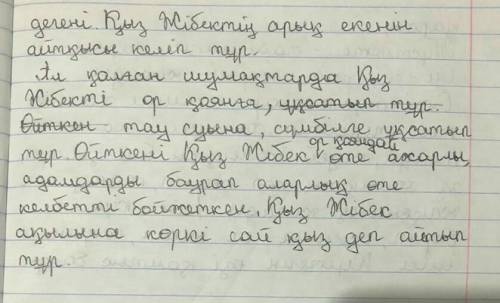 дегені Қыз Жібектің арық екенін
айтқысы келіп тұр.
Ал қалған шумақтарда Қыз
Жібекті ор қоянға, ұқсатып тұр.
Өйткен тау суына, сүмбілге ұқсатып
ор қояндай
тұр. Өйткені Қыз Жібек өте ажарлы,
адамдарды баурап аларлық өте
келбетті бойжеткен. Қыз Жібек
ақылына көркі сай қыз деп айтып
тұр.